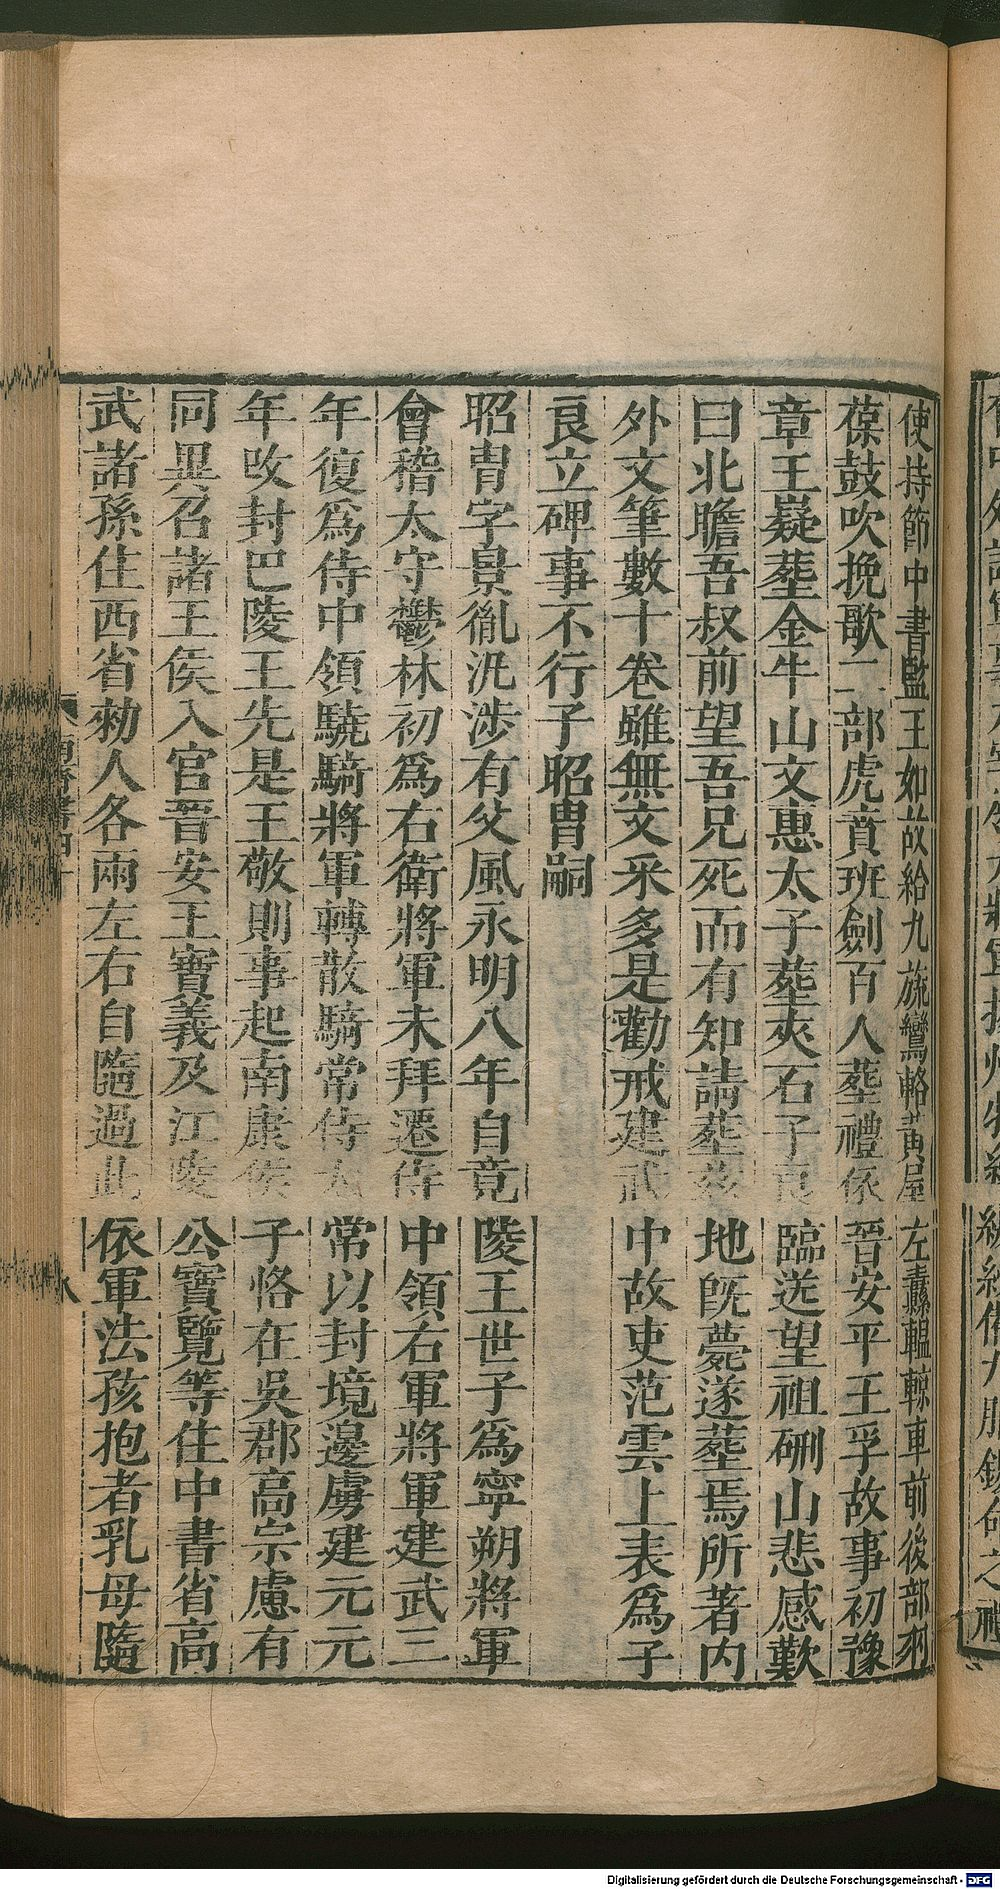 使持節中書監王如故給九旒鸞輅黃屋左纛轀輬車前後部羽
葆鼓吹挽歌二部虎賁班劍百人葬禮依晉安平王孚故事初豫
章王嶷葬金牛山文惠太子葬夾石子良臨送望祖硎山悲感歎
曰北瞻吾叔前望吾兄死而有知請葬茲地旣薨遂葬焉所著內
外文筆數十卷雖無文采多是勸戒建武中故吏范雲上表爲子
良立碑事不行子昭胄嗣
昭胄字景胤汎涉有父風永明八年自竟陵王世子爲寧朔將軍
會稽太守鬱林初爲右衛將軍未拜遷侍中領右軍將軍建武三
年復爲侍中領驍騎將軍轉散騎常侍太常以封境邊虜建元元
年改封巴陵王先是王敬則事起南康侯子恪在吳郡高宗慮有
同異召諸王侯入宮晉安王寶義及江陵公寶覽等住中書省高
武諸孫住西省敕人各兩左右自隨過此依軍法孩抱者乳母隨
南齊書四十
Digitalisierung gefördert durch die Deutsche Forschungsgemeinschaft - DFG